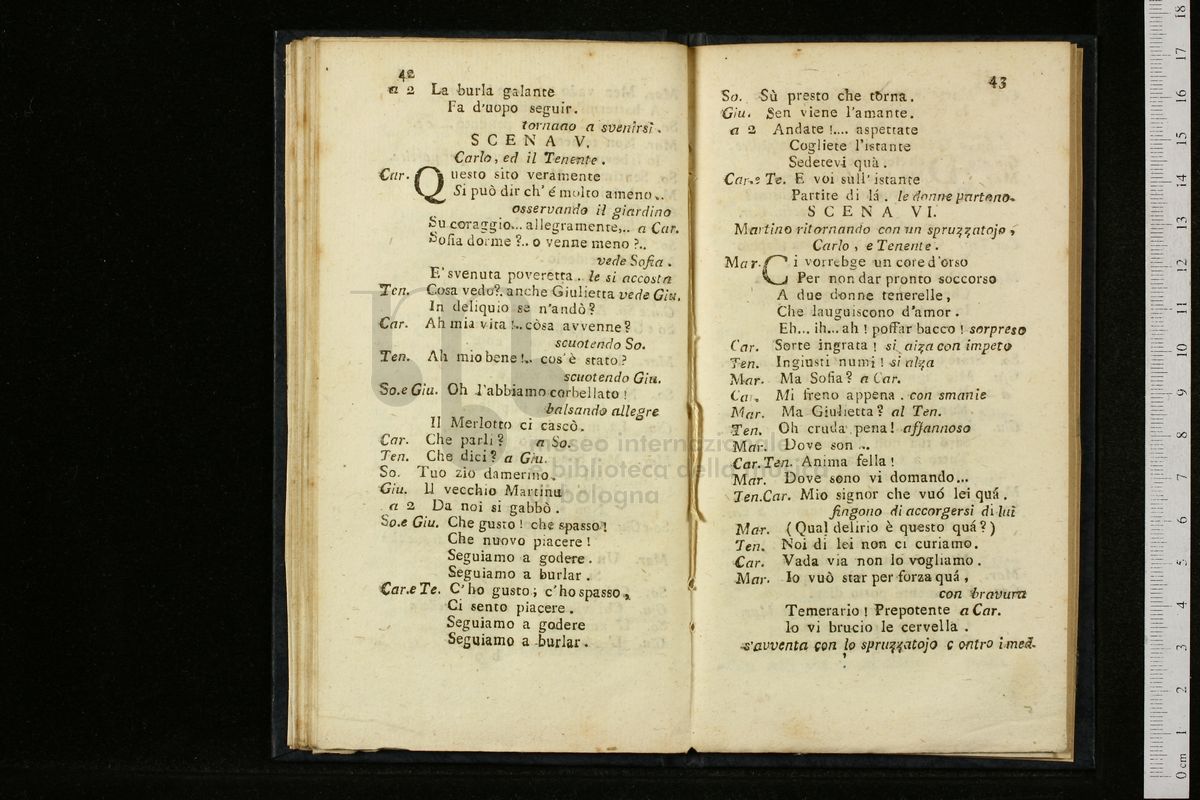 42
a 2 La burla galante
Fa d'uopo seguir.
tornano a svenirsi.
SCENA V.
Carlo, ed il Tenente.
Car. Questo sito veramente
Si può dir ch' é molto ameno..
osservando il giardino
Su coraggio... allegramente,.. a Car.
Sofia dorme?.. o venne meno?..
vede Sofia.
E' svenuta poveretta.. le si accosta
Ten. Cosa vedo?. anche Giulietta vede Giu.
In deliquio se n'andò?
Car. Ah mia vita!.. còsa avvenne?
scuotendo So.
Ten. Ah mio bene!.. cos'è stato?
scuotendo Giu.
So.e Giu. Oh l'abbiamo corbellato!
balsando allegre
Il Merlotto ci cascò.
Car. Che parli? a So.
Ten. Che dici? a Giu.
So. Tuo zio damerino.
Giu. Il vecchio Martinu
a 2 Da noi si gabbò.
So.e Giu. Che gusto! che spasso!
Che nuovo piacere!
Seguiamo a godere.
Seguiamo a burlar.
Car.e Te. C'ho gusto; c'ho spasso,
Ci sento piacere.
Seguiamo a godere
Seguiamo a burlar.
43
So. Sù presto che torna.
Giu. Sen viene l'amante.
a 2 Andate!.... aspettate
Cogliete l'istante
Sedetevi quà.
Car.e Te. E voi sull' istante
Partite di lá. le donne partono.
SCENA VI.
Martino ritornando con un spruzzatojo,
Carlo, e Tenente.
Mar. Ci vorrebge un core d'orso
Per non dar pronto soccorso
A due donne tenerelle,
Che lauguiscono d'amor.
Eh... ih... ah! poffar bacco! sorpreso
Car. Sorte ingrata! si alza con impeto
Ten. Ingiusti numi! si alza
Mar. Ma Sofia? a Car.
Ca. Mi freno appena. con smanie
Mar. Ma Giulietta? al Ten.
Ten. Oh cruda pena! affannoso
Mar. Dove son ..
Car.Ten. Anima fella!
Mar. Dove sono vi domando...
Ten.Car. Mio signor che vuó lei quá.
fingono di accorgersi di lui
Mar. (Qual delirio è questo quá?)
Ten. Noi di lei non ci curiamo.
Car. Vada via non lo vogliamo.
Mar. Io vuò star per forza quá,
con bravura
Temerario! Prepotente a Car.
Io vi brucio le cervella.
s'avventa con lo spruzzatojo c ontro i med.
museo internazionale
e biblioteca della musica
di bologna
0 cm 1 2 3 4 5 6 7 8 9 10 11 12 13 14 15 16 17 18